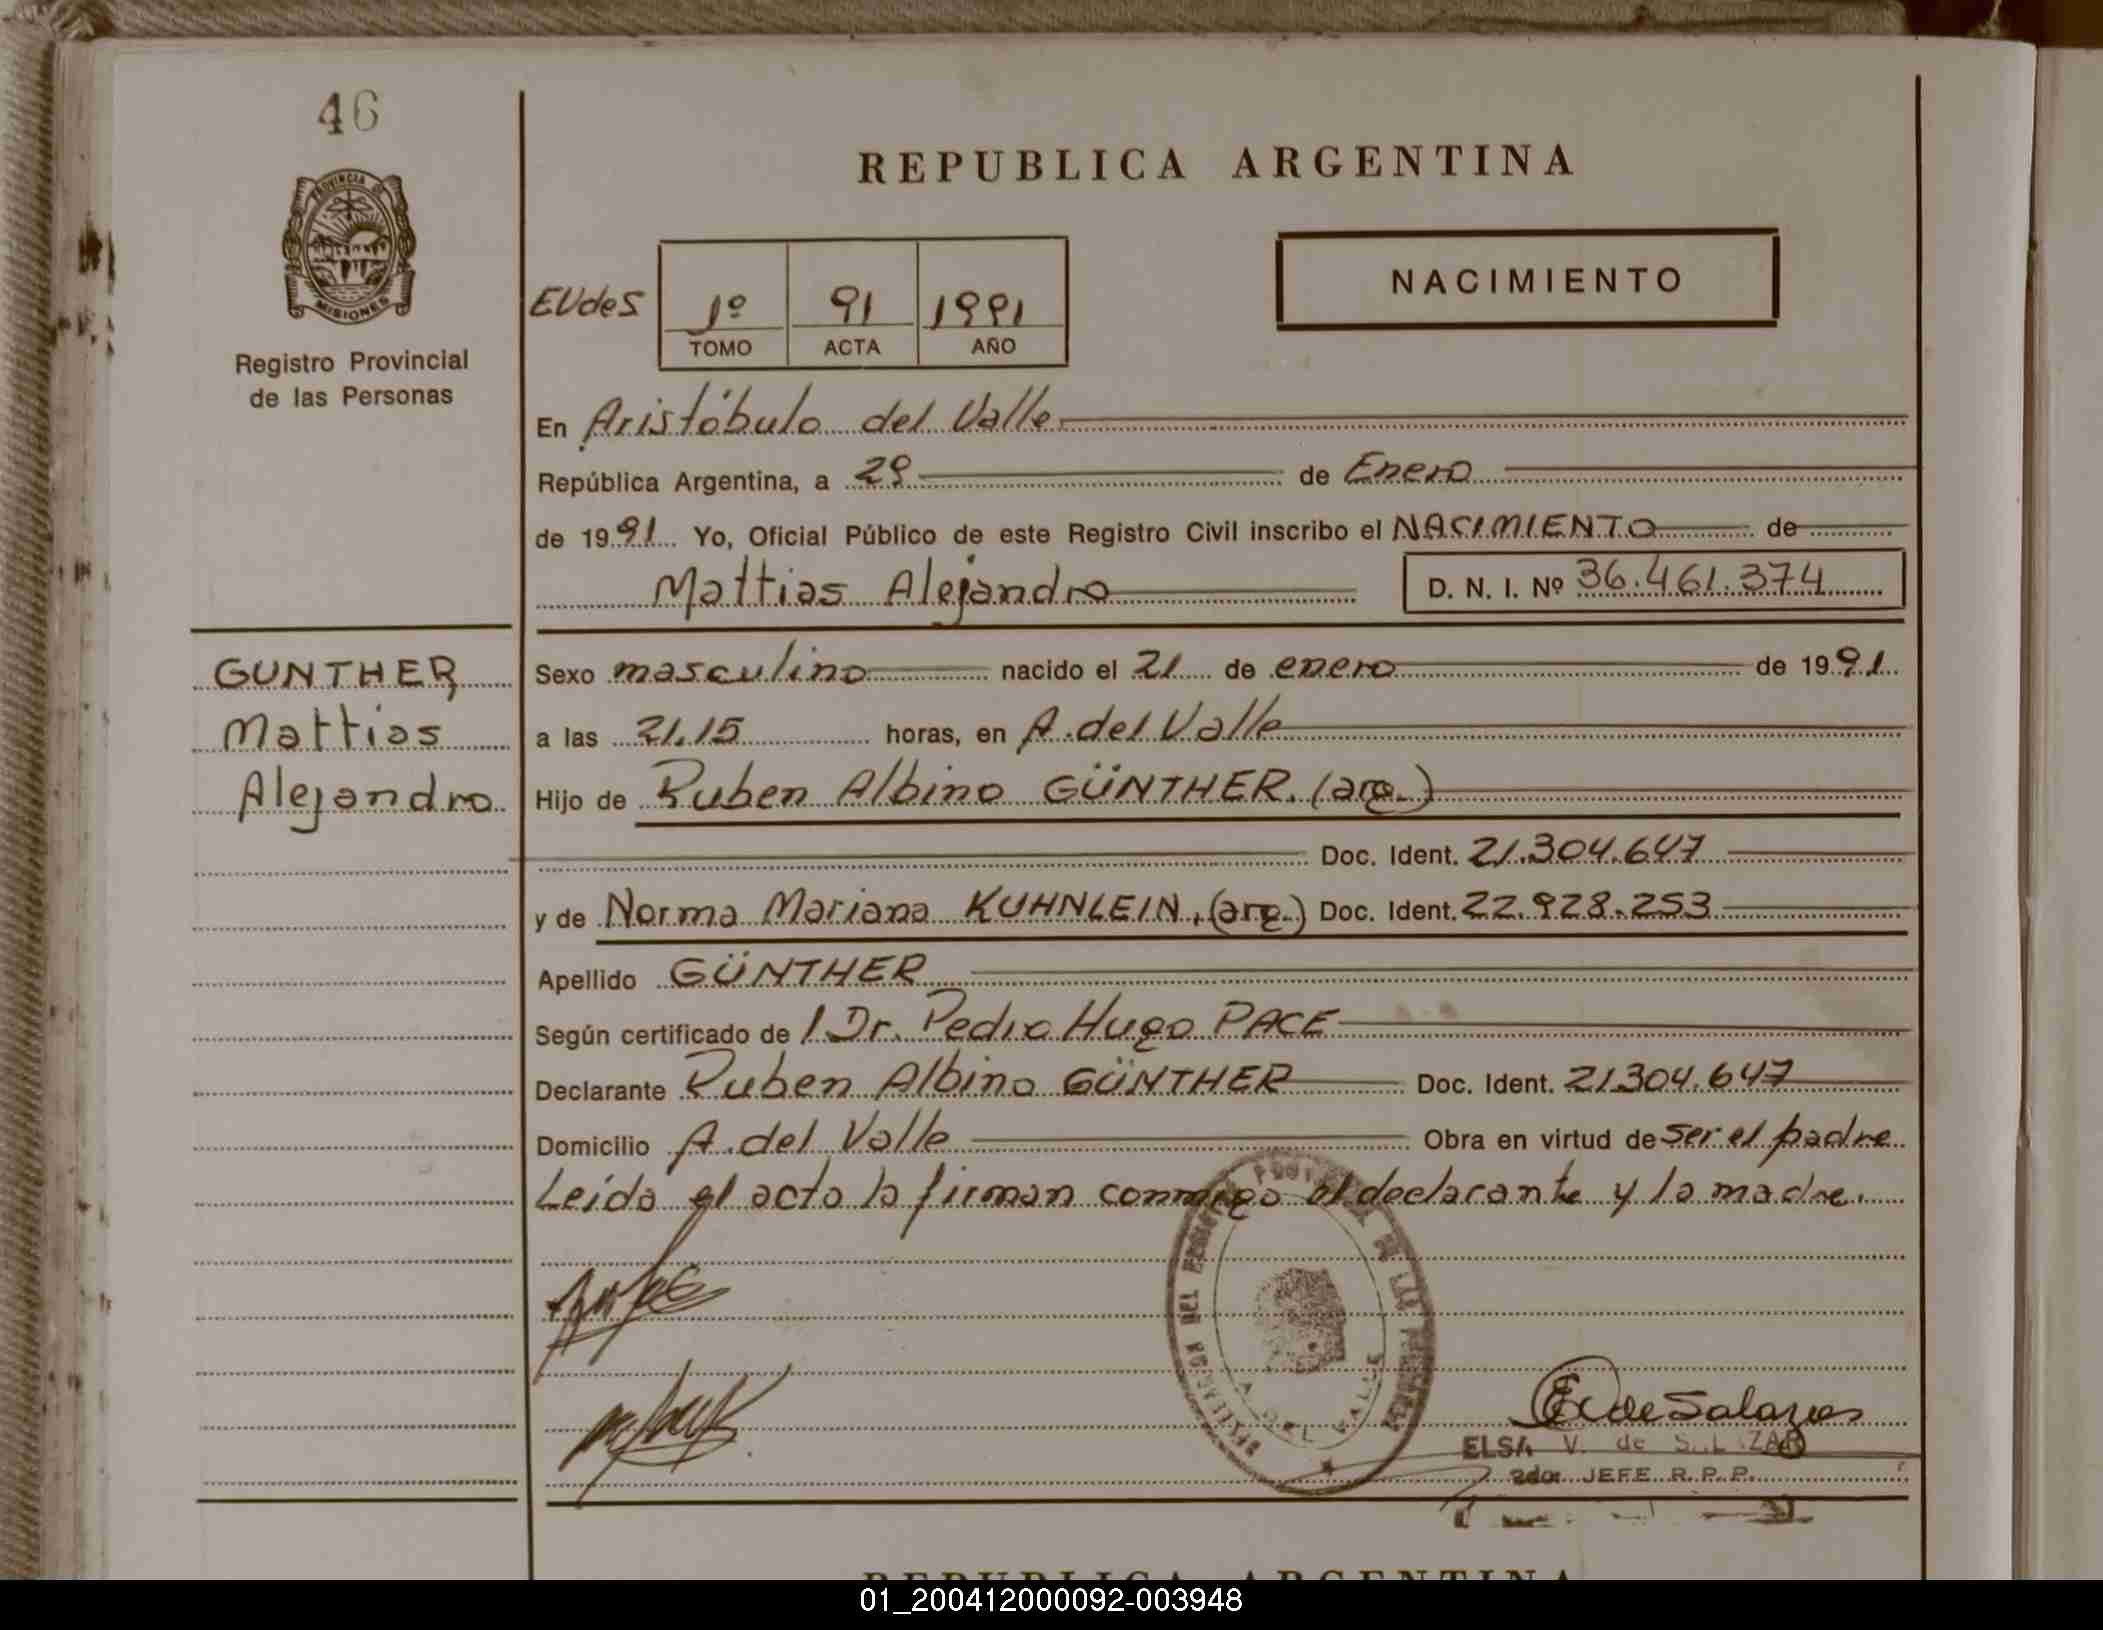 46
PROVINCIA DE
MISIONES
Registro Provincial
de las Personas
REPUBLICA ARGENTINA
NACIMIENTO
EVdeS 1º 91 1991
TOMO ACTA AÑO
En Aristóbulo del Valle
República Argentina, a 29 de Enero
de 1991 Yo, Oficial Público de este Registro Civil inscribo el NACIMIENTO de
Mattias Alejandro D. N. I. Nº 36.461.374
GUNTHER,
Mattias
Alejandro
Sexo masculino nacido el 21 de enero de 1991
a las 21.15 horas, en A. del Valle
Hijo de Ruben Albino GÜNTHER. (arg.)
Doc. Ident. 21.304.647
y de Norma Mariana KUHNLEIN, (arg.) Doc. Ident. 22.928.253
Apellido GÜNTHER
Según certificado de l Dr. Pedro Hugo PACE
Declarante Ruben Albino GÜNTHER Doc. Ident. 21.304.647
Domicilio A. del Valle Obra en virtud de ser el padre
Leida el acta la firman conmigo el declarante y la madre.
DELEGACION DEL REGISTRO PROVINCIAL DE LAS PERSONAS
A. DEL VALLE
EVdeSalazar
ELSA V. de SALAZAR
2do. JEFE R.P.P.
REPUBLICA ARGENTINA
01_200412000092-003948